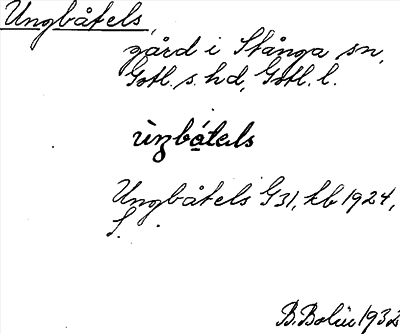 Ungbåtels,
gård i Stånga sn,
Gotl. s. hd, Gotl. l.
ùŋbátels
Ungbåtels G31, kb 1924,
S.
B. Bolin 1932